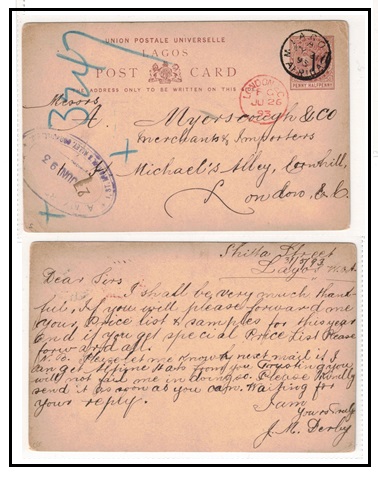 UNION POSTALE UNIVERSELLE
LAGOS
POST CARD
ADDRESS ONLY TO BE WRITTEN ON THIS
PENNY HALFPENNY
LAGOS
W. AFRICA
93
LONDON
JU 26
93
Messrs
A. Myers & Co
Merchants & Importers
Michael's Alley, Cornhill,
London, E. C.
27 JUN 93
Shitta Street
31/5/93
Lagos
Dear Sirs
I shall be very much thank-
ful, If you will please forward me
your Price list & samples for this year
And if you get special Price List Please
forward all.
Please let me know next mail if I
can get from you Trusting you
will not fail me in doing so. Please Kindly
send it as soon as you can. Waiting for
your reply.
I am
Yours truly
J. M. Derby